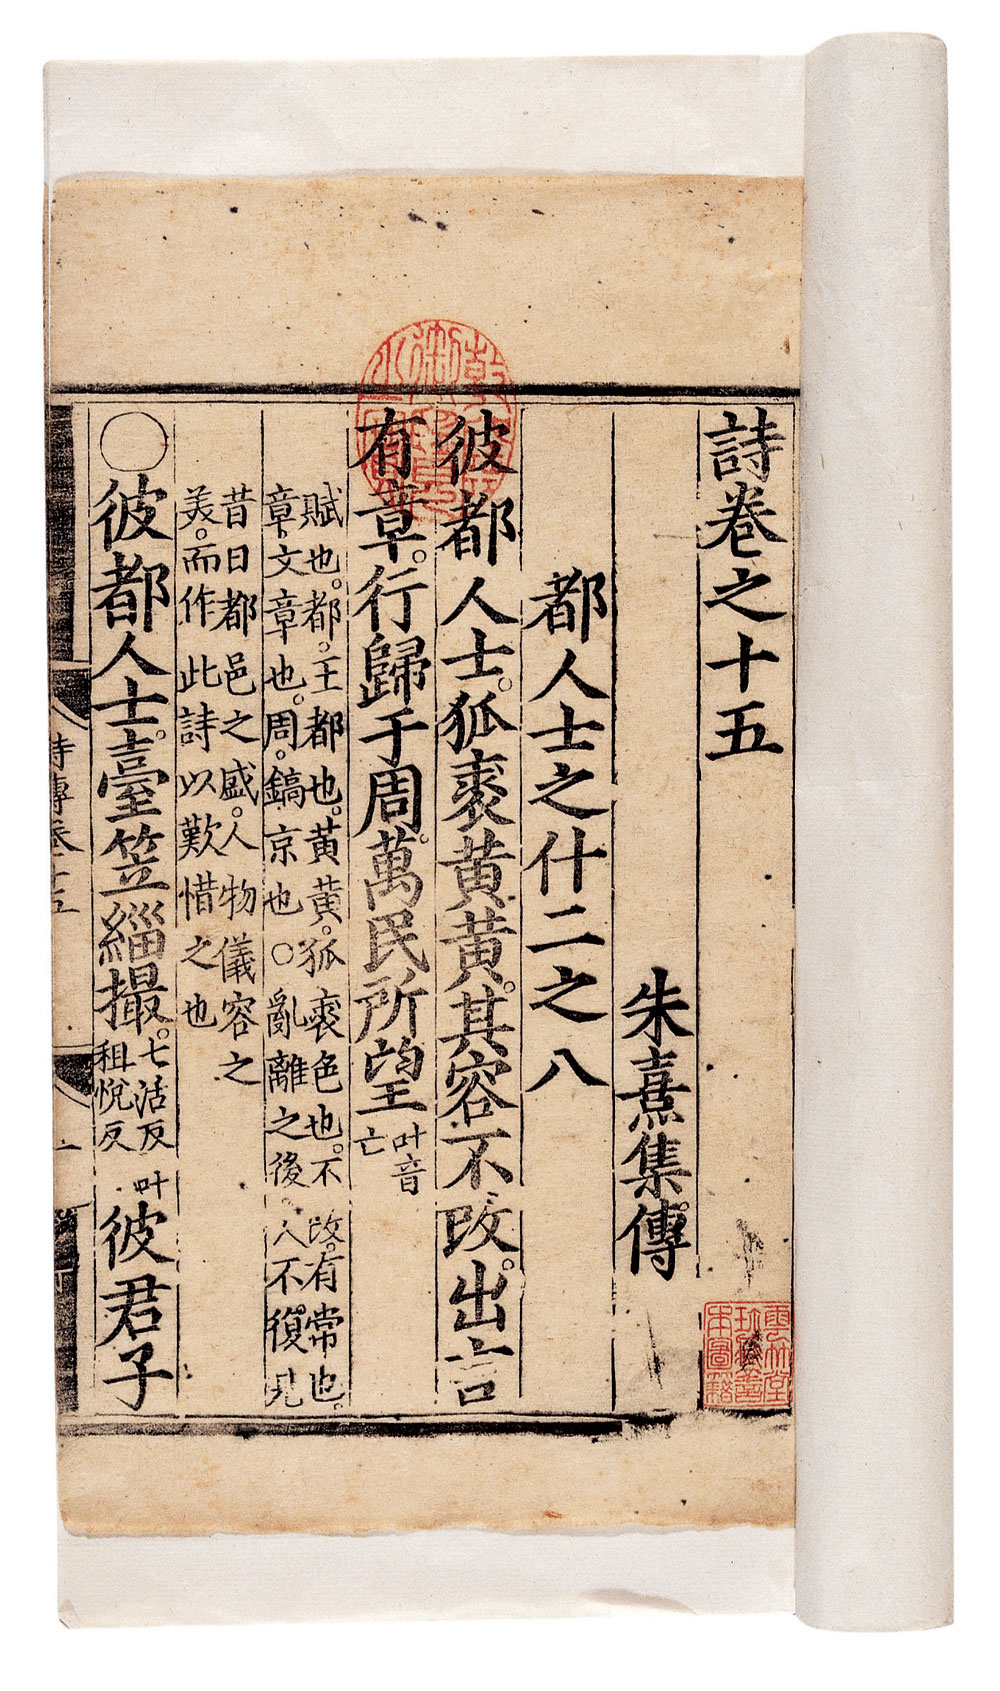 詩卷之十五
朱熹集傳
都人士之什二之八
彼都人士。狐裘黄黄。其容不改。出言
有章。行歸于周。萬民所望叶音亡
賦也。都。王都也。黄黄。狐裘色也。不改。有常也。
章。文章也。周。鎬京也○亂離之後。人不復見
昔日都邑之盛。人物儀容之
美。而作此詩以歎惜之也
○彼都人士。臺笠緇撮。七活反叶租悅反彼君子
詩傳卷十五
一
乾隆御覽之寶